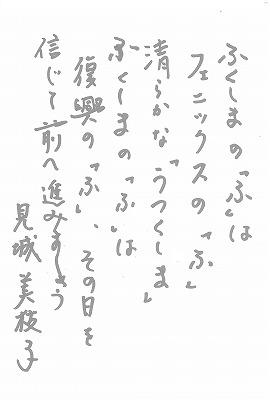 ふくしまの「ふ」は
フェニックスの「ふ」
清らかな「うつくしま」
ふくしまの「ふ」は
復興の「ふ」、その日を
信じて前へ進みましょう
見城美枝子